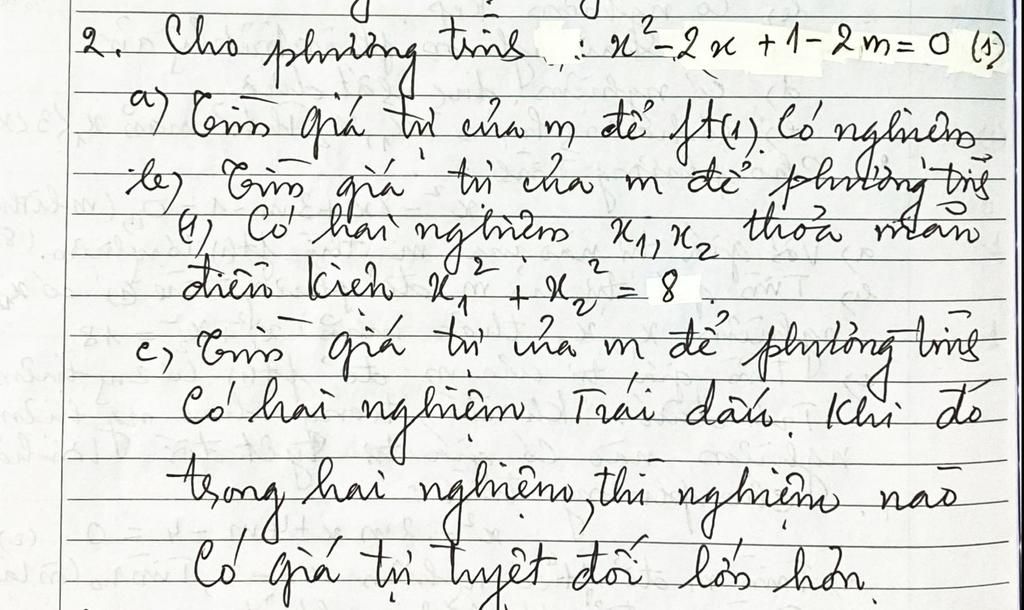 2. Cho phương trình : x² - 2x + 1 - 2m = 0 (1)
a) Tìm giá trị của m để ft(1) Có nghiệm
b) Tìm giá trị của m để phương trình
(1) Có hai nghiệm x₁, x₂ thỏa mãn
điều kiện x₁² + x₂² = 8.
c) Tìm giá trị của m để phương trình
Có hai nghiệm Trái dấu. Khi đó
trong hai nghiệm, thì nghiệm nào
Có giá trị tuyệt đối lớn hơn.